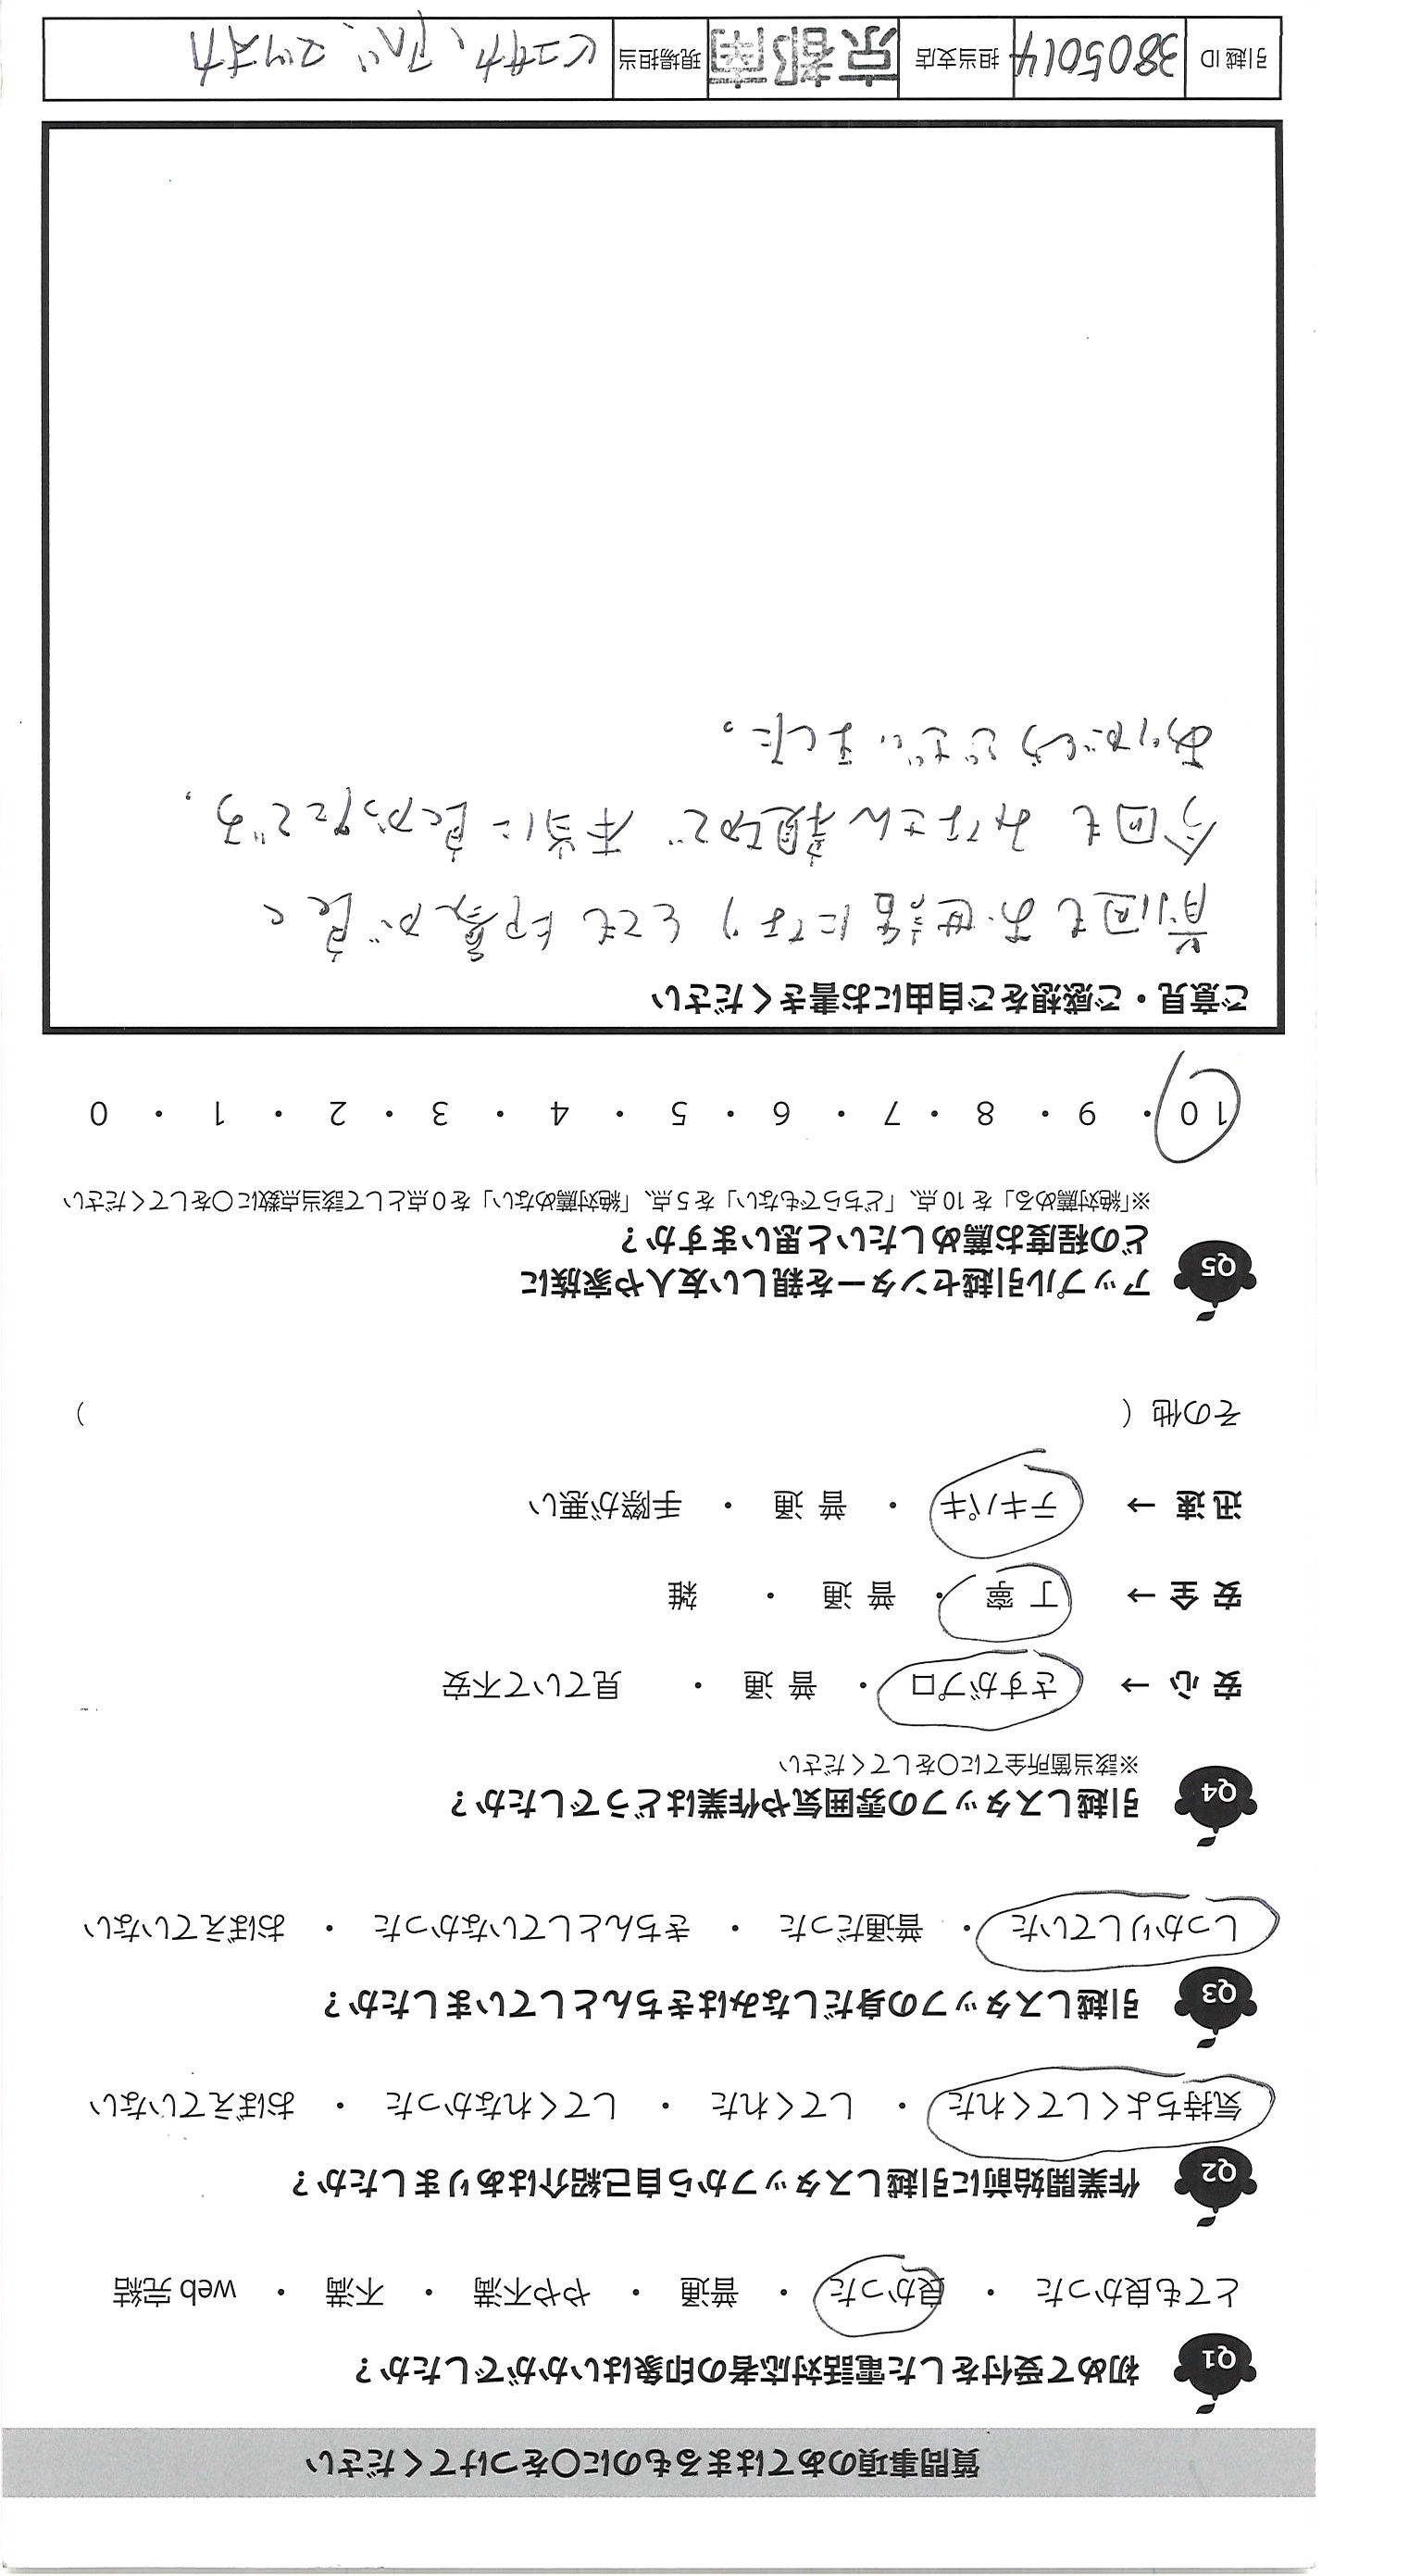 質問事項のあてはまるものに〇をつけてください
Q1 初めて受付をした電話対応者の印象はいかがでしたか？
とても良かった ・ 良かった ・ 普通 ・ やや不満 ・ 不満 ・ web 完結
Q2 作業開始前に引越しスタッフから自己紹介はありましたか？
気持ちよくしてくれた ・ してくれた ・ してくれなかった ・ おぼえていない
Q3 引越しスタッフの身だしなみはきちんとしていましたか？
しっかりしていた ・ 普通だった ・ きちんとしていなかった ・ おぼえていない
Q4 引越しスタッフの雰囲気や作業はどうでしたか？
※該当箇所全てに〇をしてください
安 心 → さすがプロ ・ 普 通 ・ 見ていて不安
安 全 → 丁 寧 ・ 普 通 ・ 雑
迅 速 → テキパキ ・ 普 通 ・ 手際が悪い
その他（ ）
Q5 アップル引越センターを親しい友人や家族に
どの程度お薦めしたいと思いますか？
※「絶対薦める」を 10 点、「どちらでもない」を 5 点、「絶対薦めない」を 0 点として該当点数に〇をしてください
10 ・ 9 ・ 8 ・ 7 ・ 6 ・ 5 ・ 4 ・ 3 ・ 2 ・ 1 ・ 0
ご意見・ご感想をご自由にお書きください
前回もお世話になりとても印象が良く
今回もみなさん親切で本当に良かったです。
ありがとうございました。
引越 ID 3805014 担当支店 京都南 現場担当 ヒユサカ、アベ、マツオカ